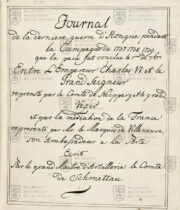 Journal
de la derniere guerre d'Hongrie pendant
la Campagne de 1737. 1738. 1739.
que la paix fut conclue le 1er de 7bre
Entre L'Empereur Charles VI. et le
Grand Seigneur
represente par le Comte de Neipperg et le grand
Vezir
et par la mediation de la France
represente par Mr. le Marquis de Villeneuve
son Ambassadeur a la Porte
Ecrit
Par le grand Maitre d'Artillerie le Comte
de Schmettau